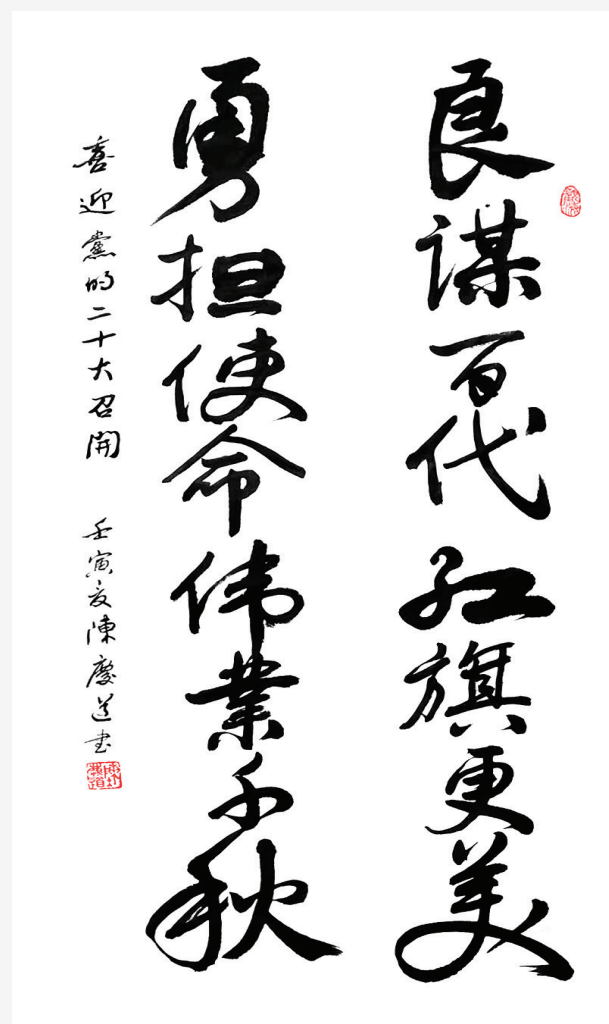 良謀百代红旗更美
勇担使命伟業千秋
喜迎黨的二十大召開
壬寅夏陳慶道书